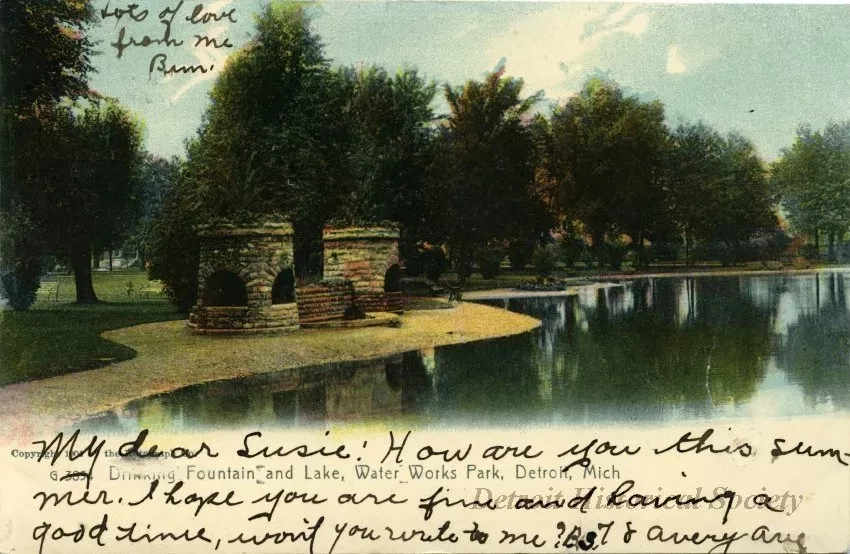 Lots of love
from me
Bun.
My dear Susie: How are you this sum-
G 3854 Drinking Fountain and Lake, Water Works Park, Detroit, Mich
mer. I hope you are fine and having a
Detroit Historical Society
good time, won't you write to me? & Avery Ave